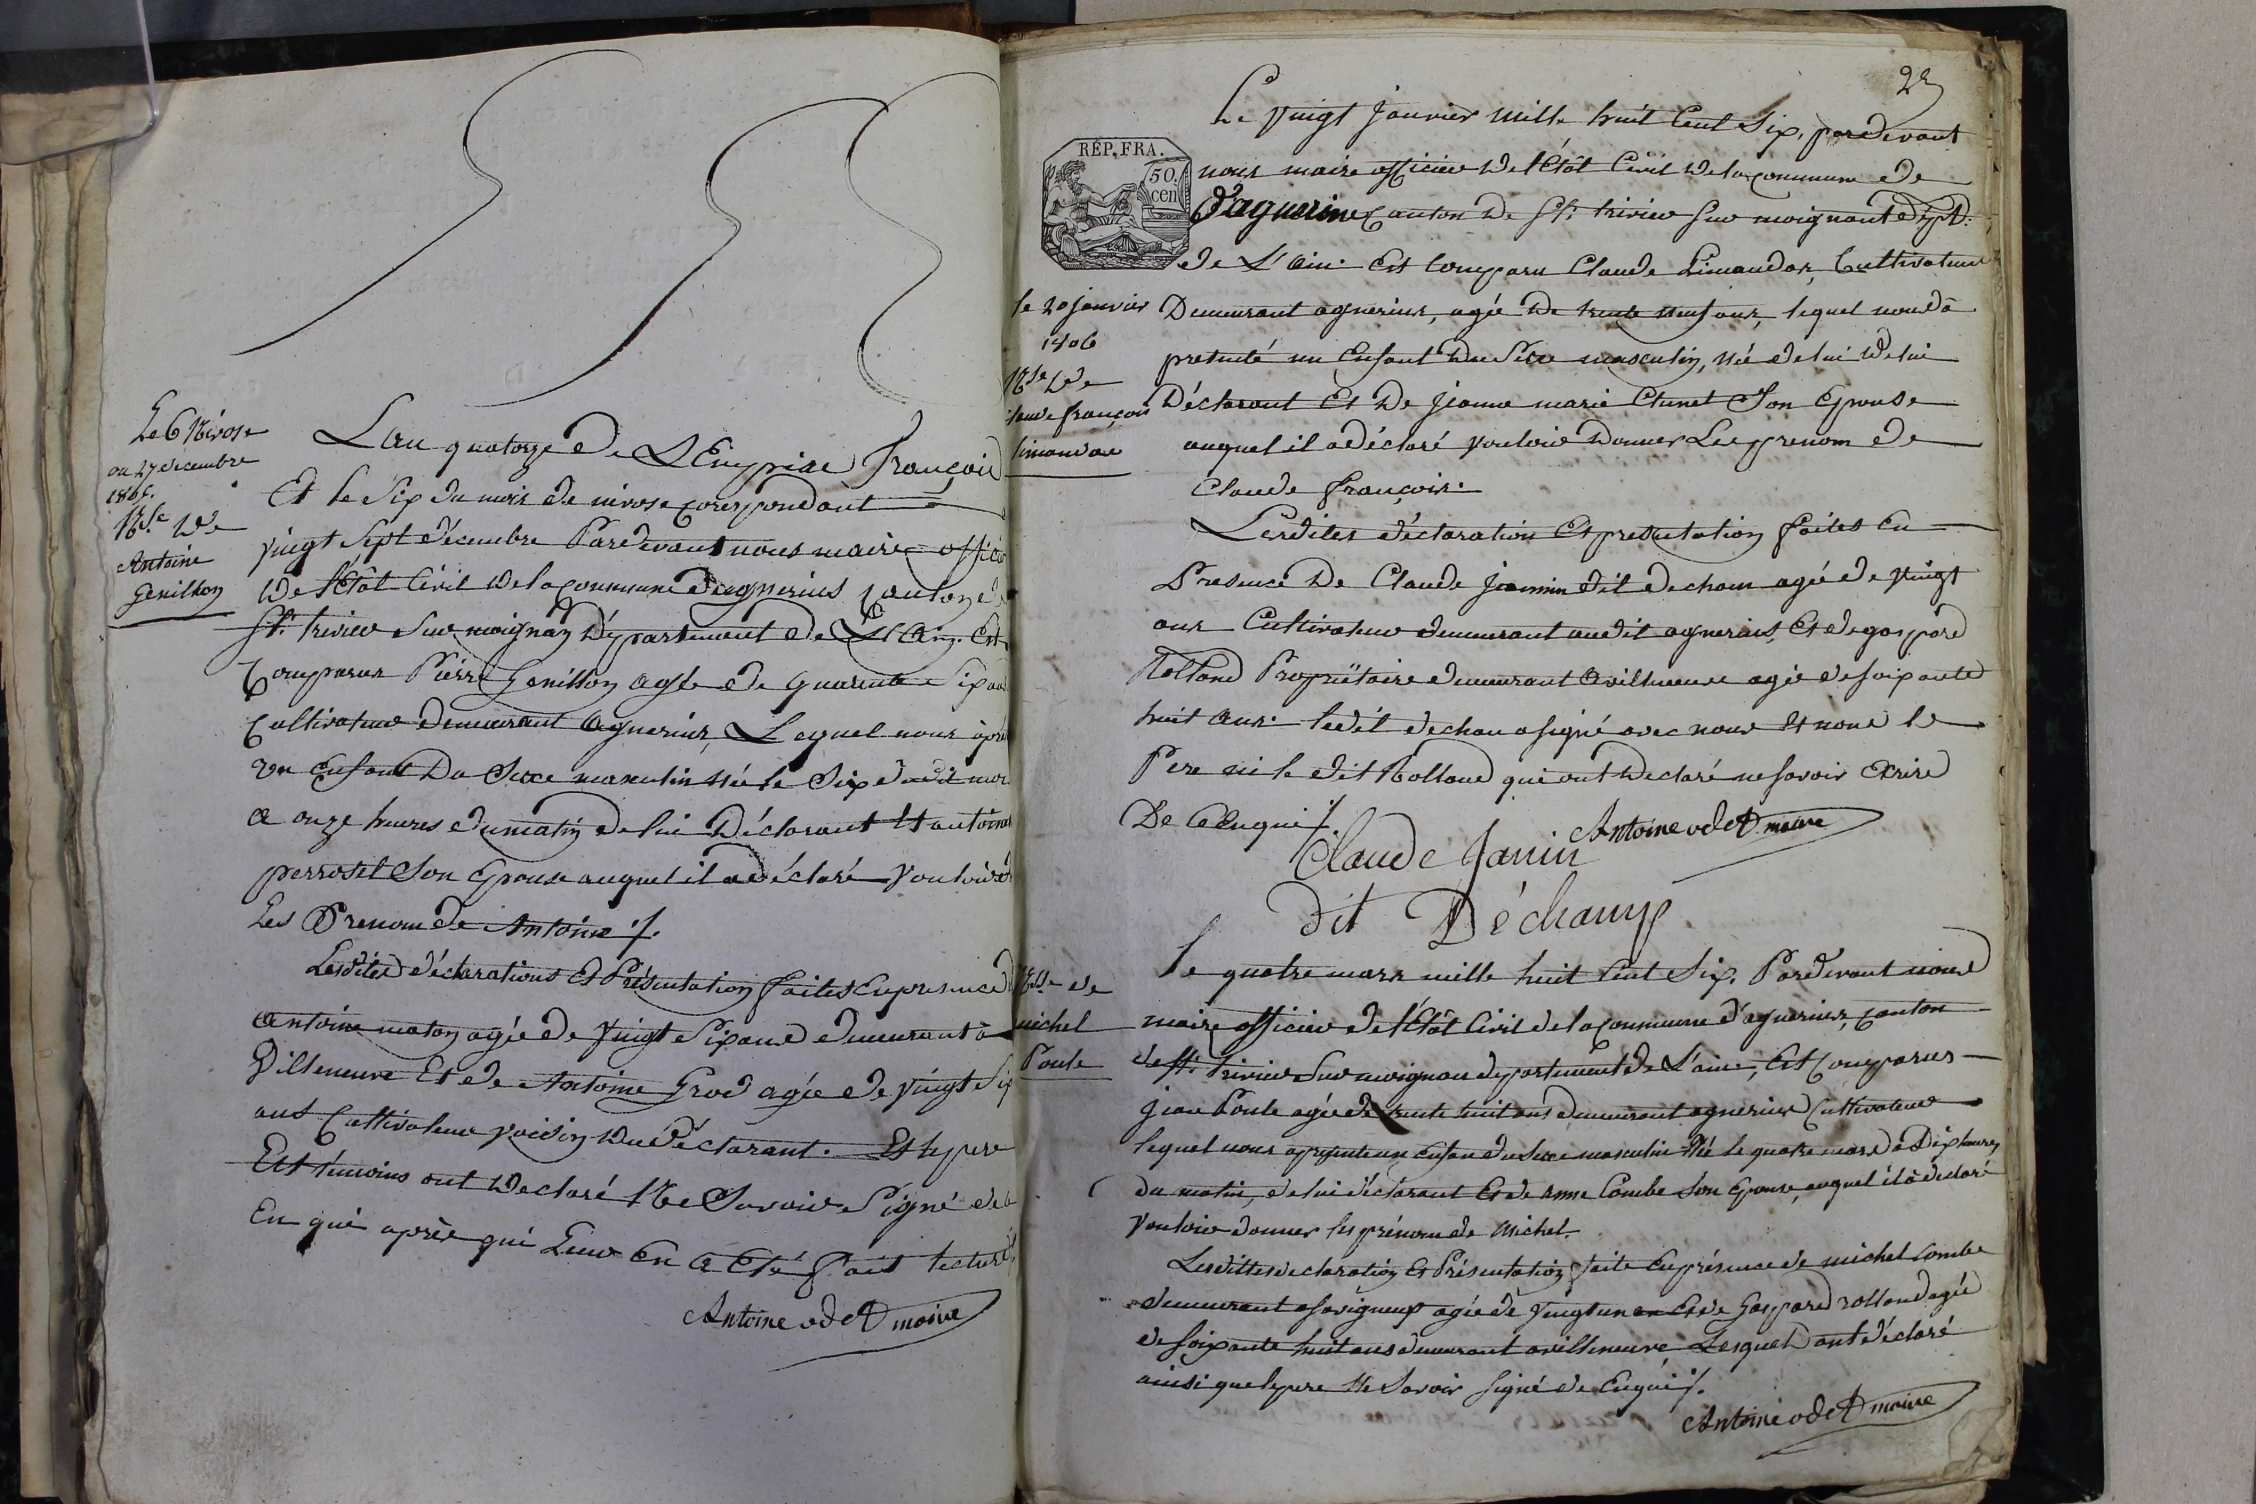 Le 6 Nivose
ou 27 decembre
1805.
N.se De
Antoine
Genillon
L'an quatorze De L'Empire françois
Et le Six du mois de nivose corespondant
vingt Sept décembre Pardevant nous maire offici
De l'Etât Civil De la Commune dagnerins Canton de
St. trivier Sur moignan Département De L'Ain. Est
Comparus Pierre Genillon agée de quarente Six ans
Cultivateur demeurant Agnerins, Lequel nous apré
un Enfant Du Sexe masculin Née le Six dudit mois
a onze heures du matin de lui Déclarant Et antoinet
perroset Son Epouse auquel il a déclaré vouloir d
Les Prenom de Antoine ./.
Lesdites déclarations Et Présentation faites En presence d
Antoine maton agée de vingt Six ans demeurant à
Villeneuve Et de Antoine Grod agée de vingt Six
ans Cultivateur voisin Du Déclarant. Et le pere
Et témoins ont Declaré Ne Savoir Signé de c
En qui après qui Leur En a Eté fait lecture
Antoine odet maire
23
RÉP. FRA.
50.
cen
Le vingt Janvier mille huit Cent Six, pardevant
nous maire officier De l'Etât Civil De la Commune de
D'agnerine Canton De St. trivier Sur moignant Dept.
de L'Ain. Est Comparu Claude Limandas, Cultivateur
le 20 janvier
1806
N.se De
claude françois
limandas
Demeurant agnerins, agée De trente neuf ans, lequel nous à
presenté un Enfant Du Sexe masculin, née de lui De lui
Déclarant Et De Jeanne marie Clunet Son Epouse
auquel il a déclaré vouloir Donner Les prenom de
Claude françois.
Lesdites déclaration Et presentation faites En
Presence De Claude Jeannin dit decham agée de vingt
ans Cultivateur demeurant audit agnerins, Et de gaspard
Rolland Propriëtaire demeurant a villeneuve agée de soixante
huit ans. ledit dechan a signé avec nous Et nond le
Pere ni le dit Rolland qui ont Declaré ne savoir Ecrire
De Ce Enqui ./.
Antoine odet maire
Claude Janin
dit Déchamp
N.se de
michel
Poule
Le quatre mars mille huit Cent Six. Pardevant nous
maire officier de l'Etât Civil de la Commune d'agnerins, Canton
de St. trivier Sur moignan departement de L'ain, Est Comparus
jean Poule agée de trente huit ans demeurant agnerins Cultivateur
lequel nous apresente un Enfan du Sexe masculin Née le quatre mars à Dix heures
du matin, de lui déclarant Et de Anne Combe Son Epouse, auquel il à déclaré
vouloir donner les prénom de Michel.
Lesdittes declaration Et Présentation faite En présence de michel Combe
demeurant a savigneux agée de vingt un an Et de Gaspard rolland agée
de soixante huit ans demeurant a villeneuve Lesquel ont déclaré
ainsi que le pere Ne Savoir signé de Enqui ./.
Antoine odet maire